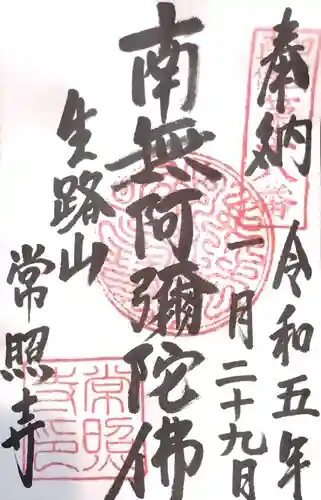 奉納
令和五年
一月二十九日
南無阿彌陀佛
生路山
常照寺
常照
寺印